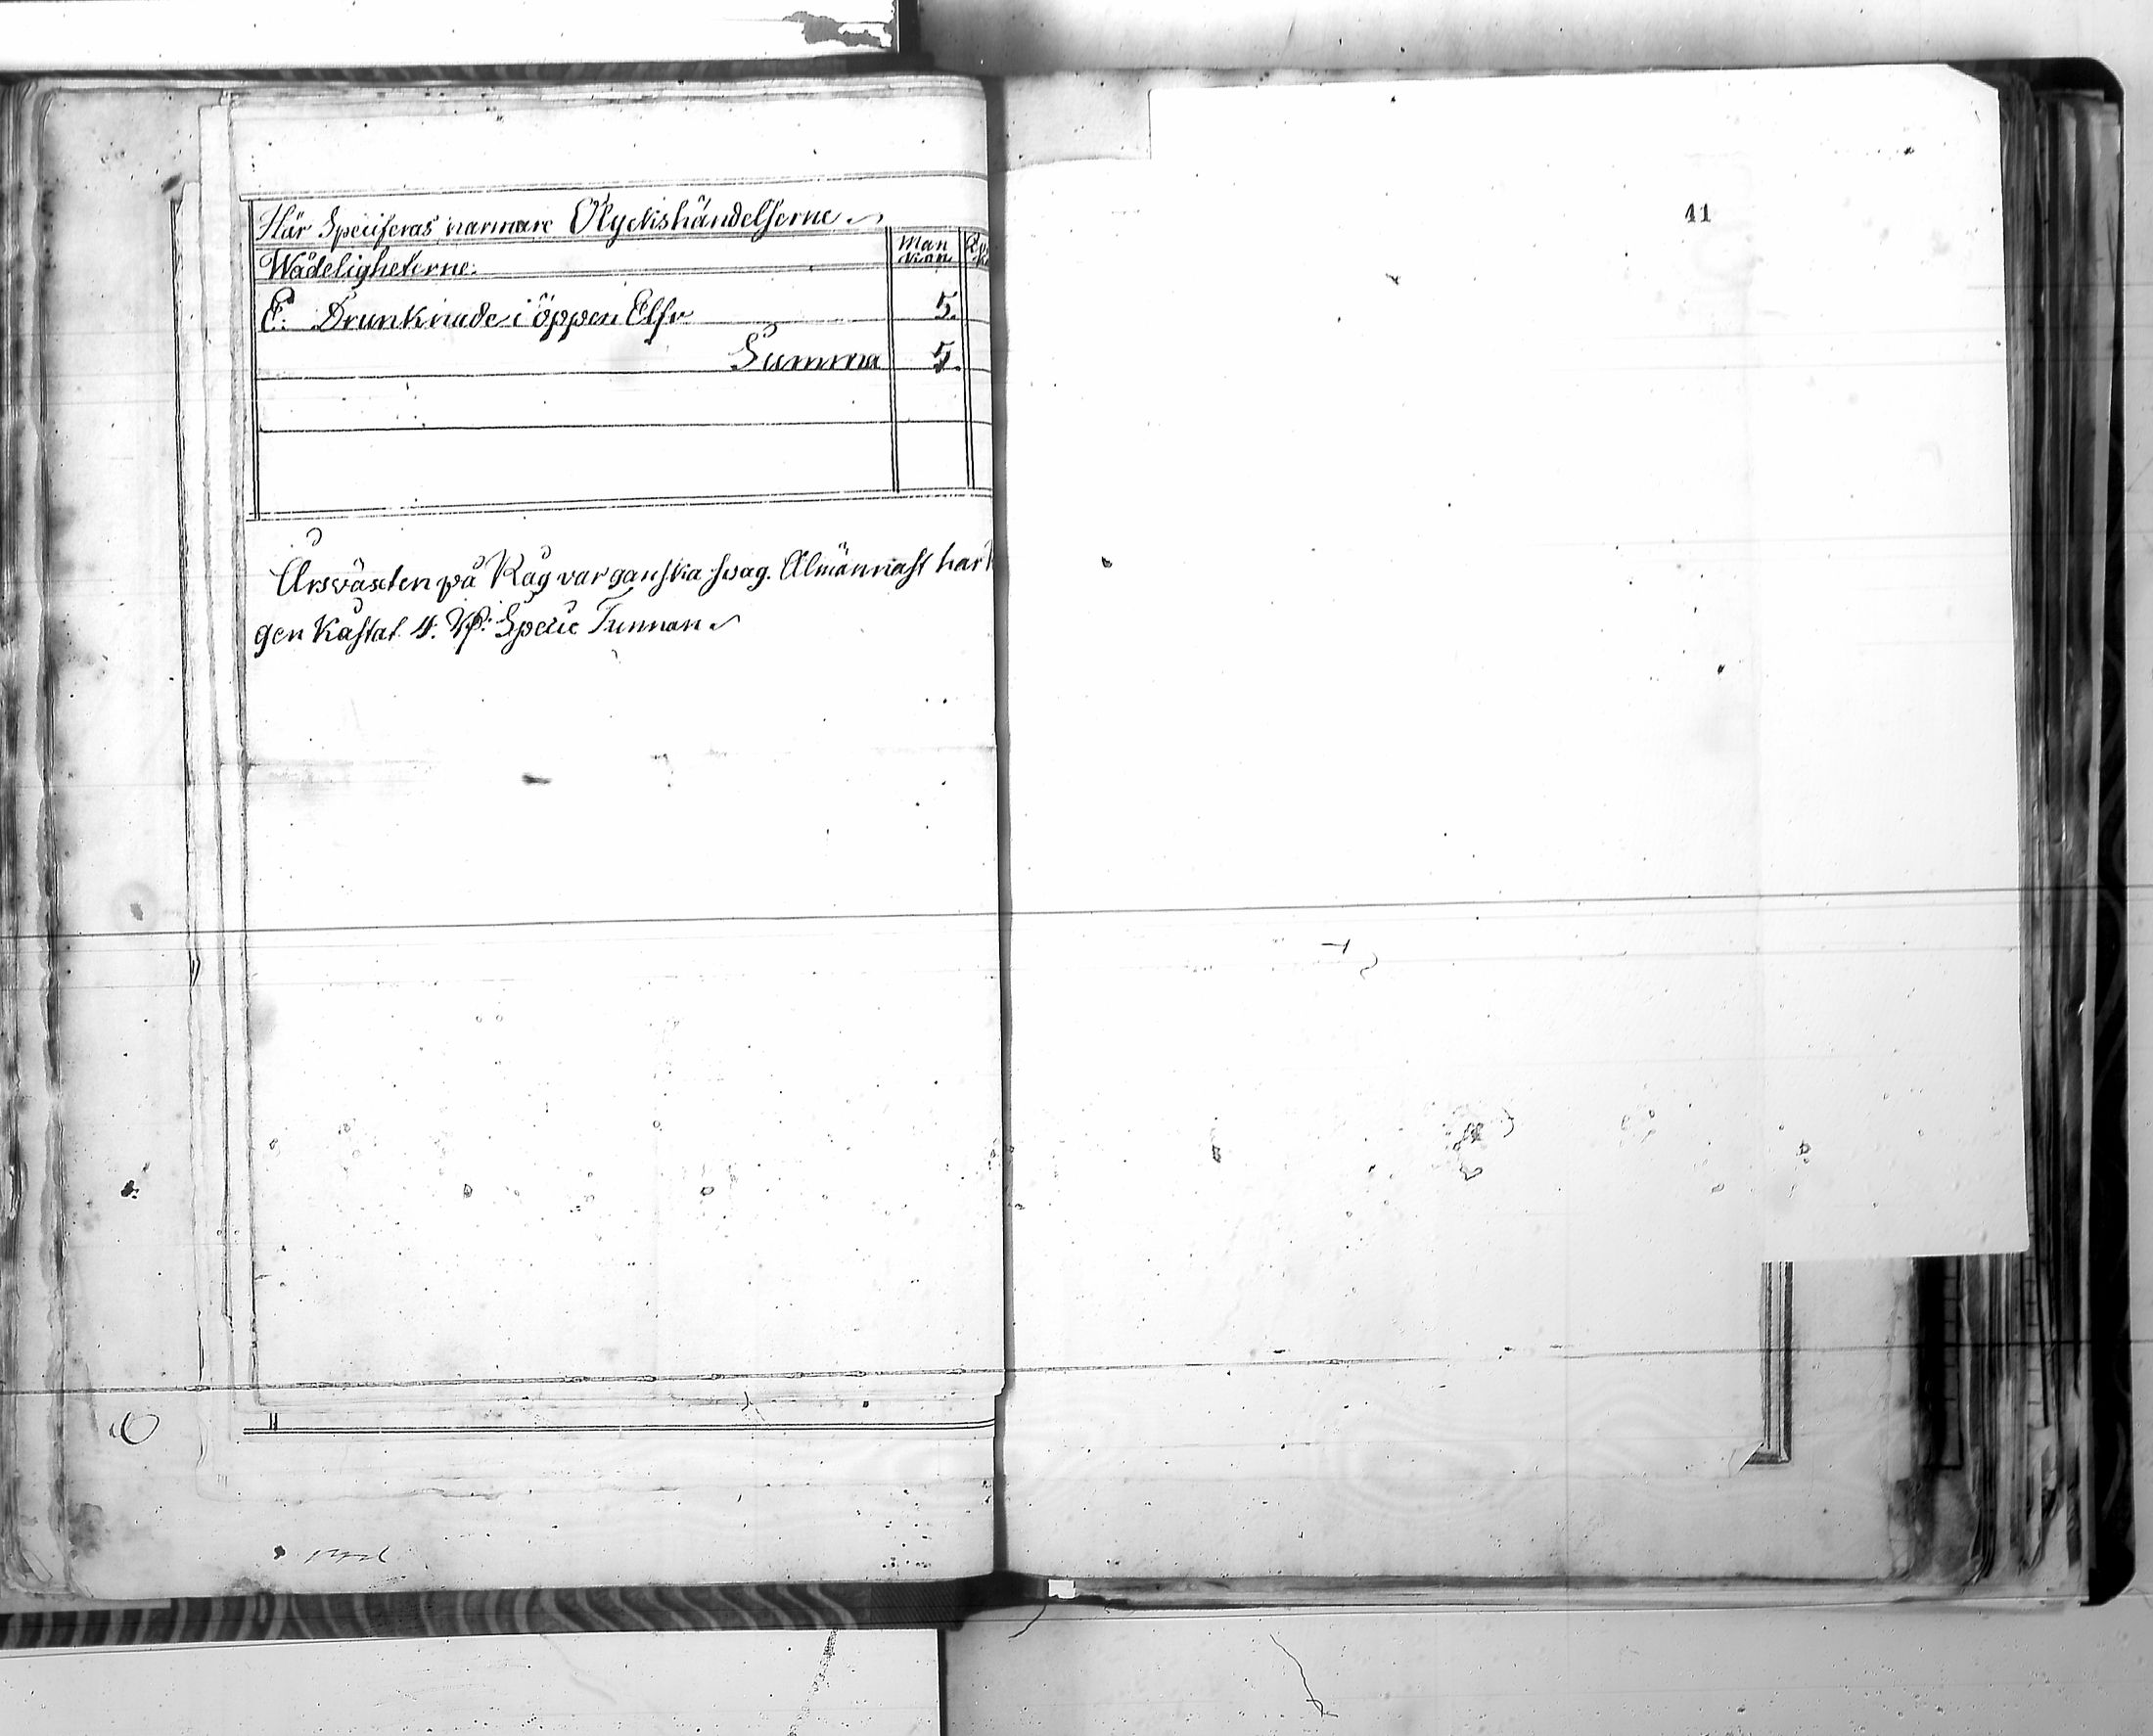 Här Specificeras närmare Olyckshändelserne
Wådeligheterne.
Man
Kiön
E. Drunknade i öppen Elfv 5.
Summa 5.
Årsväxten på Råg var ganska svag. Almännast har
gen Kastat 4. Specie Tunnan
41